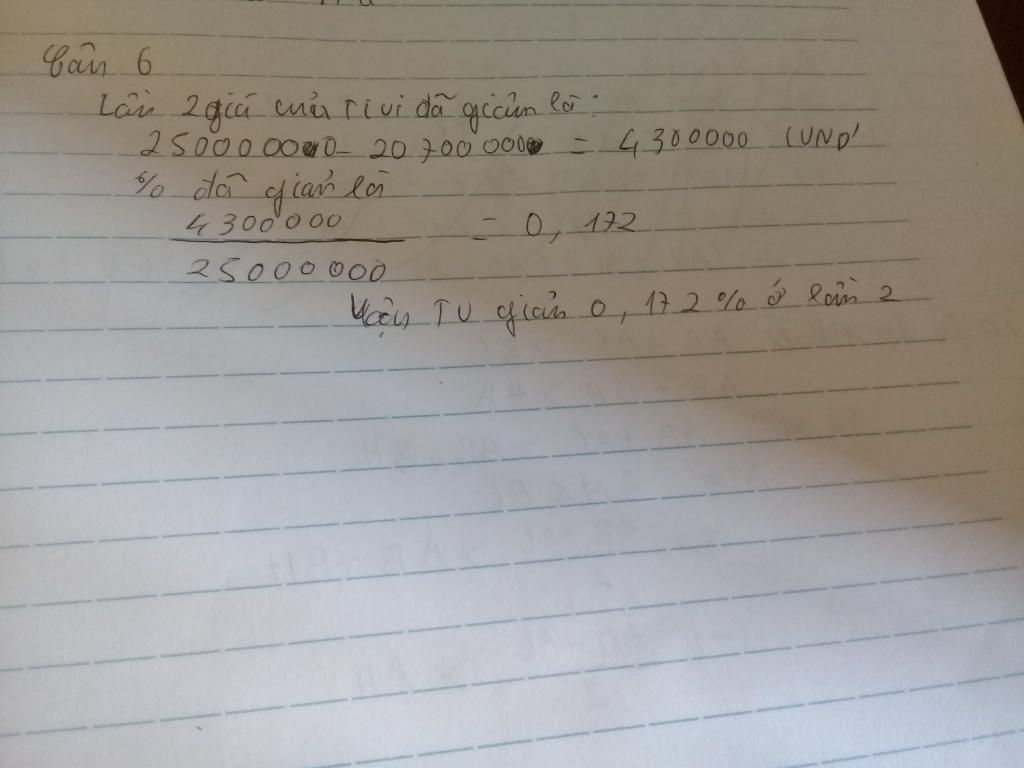 Câu 6
Lần 2 giá của Tivi đã giảm là:
25000000 - 20700000 = 4300000 (VNĐ)
% đã giảm là
4300000 = 0,172
25000000
Vậy TV giảm 0,172% ở lần 2